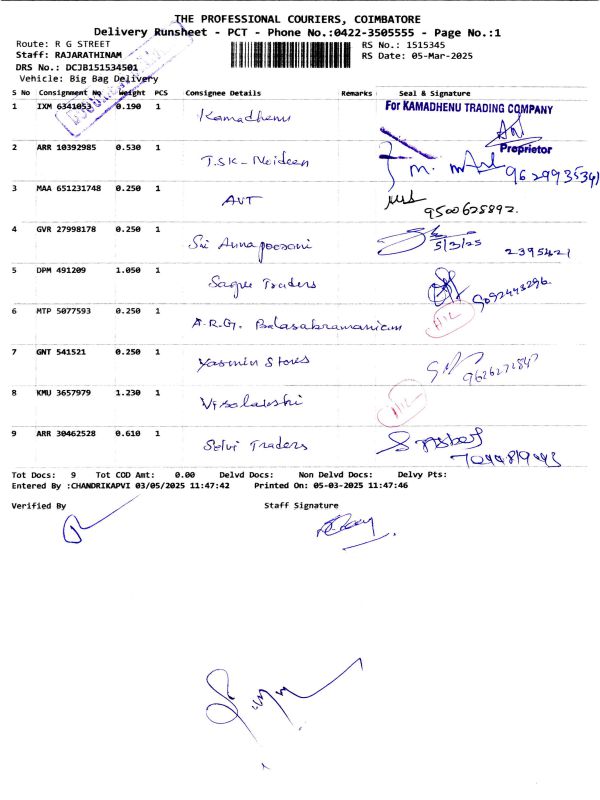 THE PROFESSIONAL COURIERS, COIMBATORE
Delivery Runsheet - PCT - Phone No.:0422-3505555 - Page No.:1
Route: R G STREET RS No.: 1515345
Staff: RAJARATHINAM RS Date: 05-Mar-2025
DRS No.: DCJB151534501
Vehicle: Big Bag Delivery
S No Consignment No Weight PCS Consignee Details Remarks Seal & Signature
1 IXM 6341053 0.190 1 Kamadhenu For KAMADHENU TRADING COMPANY
Proprietor
2 ARR 10392985 0.530 1 T.S.K-
3 MAA 651231748 0.250 1 AVT 9500625892.
4 GVR 27998178 0.250 1 Sri Annapoorani 5/3/25 2395421
5 DPM 491209 1.050 1 Traders 9092443296
6 MTP 5077593 0.250 1 A.R.G. Balasubramanium
7 GNT 541521 0.250 1 Yasmin Stores
8 KMU 3657979 1.230 1 Visalakshi
9 ARR 30462528 0.610 1 Selvi Traders
Tot Docs: 9 Tot COD Amt: 0.00 Delvd Docs: Non Delvd Docs: Delvy Pts:
Entered By :CHANDRIKAPVI 03/05/2025 11:47:42 Printed On: 05-03-2025 11:47:46
Verified By Staff Signature